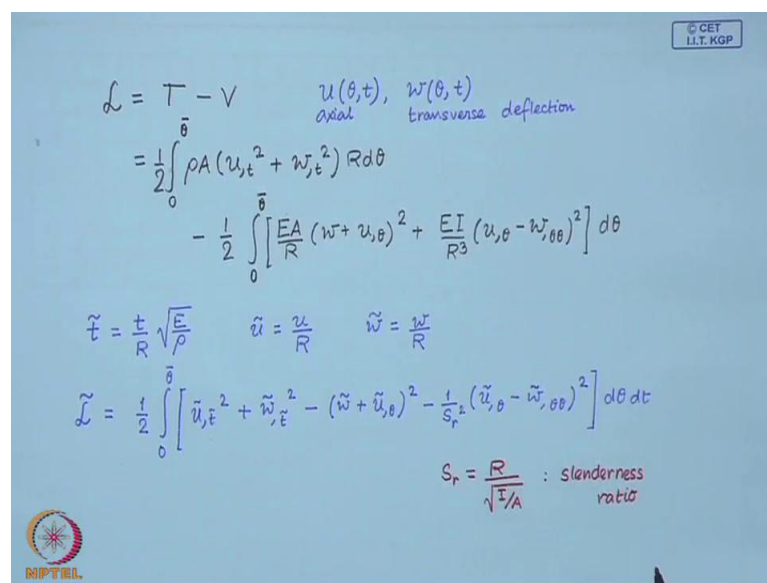 © CET
I.I.T. KGP
ℒ = T − V    u(θ,t), w(θ,t)
axial    transverse deflection
= 1/2 ∫₀^θ̄ ρA (u,t² + w,t²) R dθ
− 1/2 ∫₀^θ̄ [ EA/R (w + u,θ)² + EI/R³ (u,θ − w,θθ)² ] dθ
t̃ = t/R √(E/ρ)    ũ = u/R    w̃ = w/R
ℒ̃ = 1/2 ∫₀^θ̄ [ ũ,t̃² + w̃,t̃² − (w̃ + ũ,θ)² − 1/Sr² (ũ,θ − w̃,θθ)² ] dθ dt
Sr = R/√(I/A) : slenderness
ratio
NPTEL